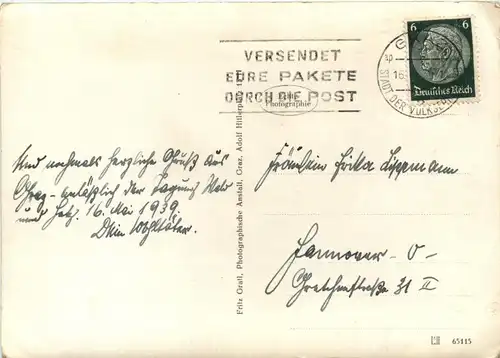 VERSENDET
EURE PAKETE
DURCH DIE POST
Echte
Photographie
6 6
Deutsches Reich
G
16.
STADT DER VOLKSER
Und nochmals herzliche Grüße aus
Graz - anläßlich der Tagung
und 16. Mai 1939.
Dein
Fritz Gratl, Photographische Anstalt, Graz, Adolf Hitlerplatz
Fräulein Erika Lippmann
Hannover - O -
Gretchenstraße 31 II
65115